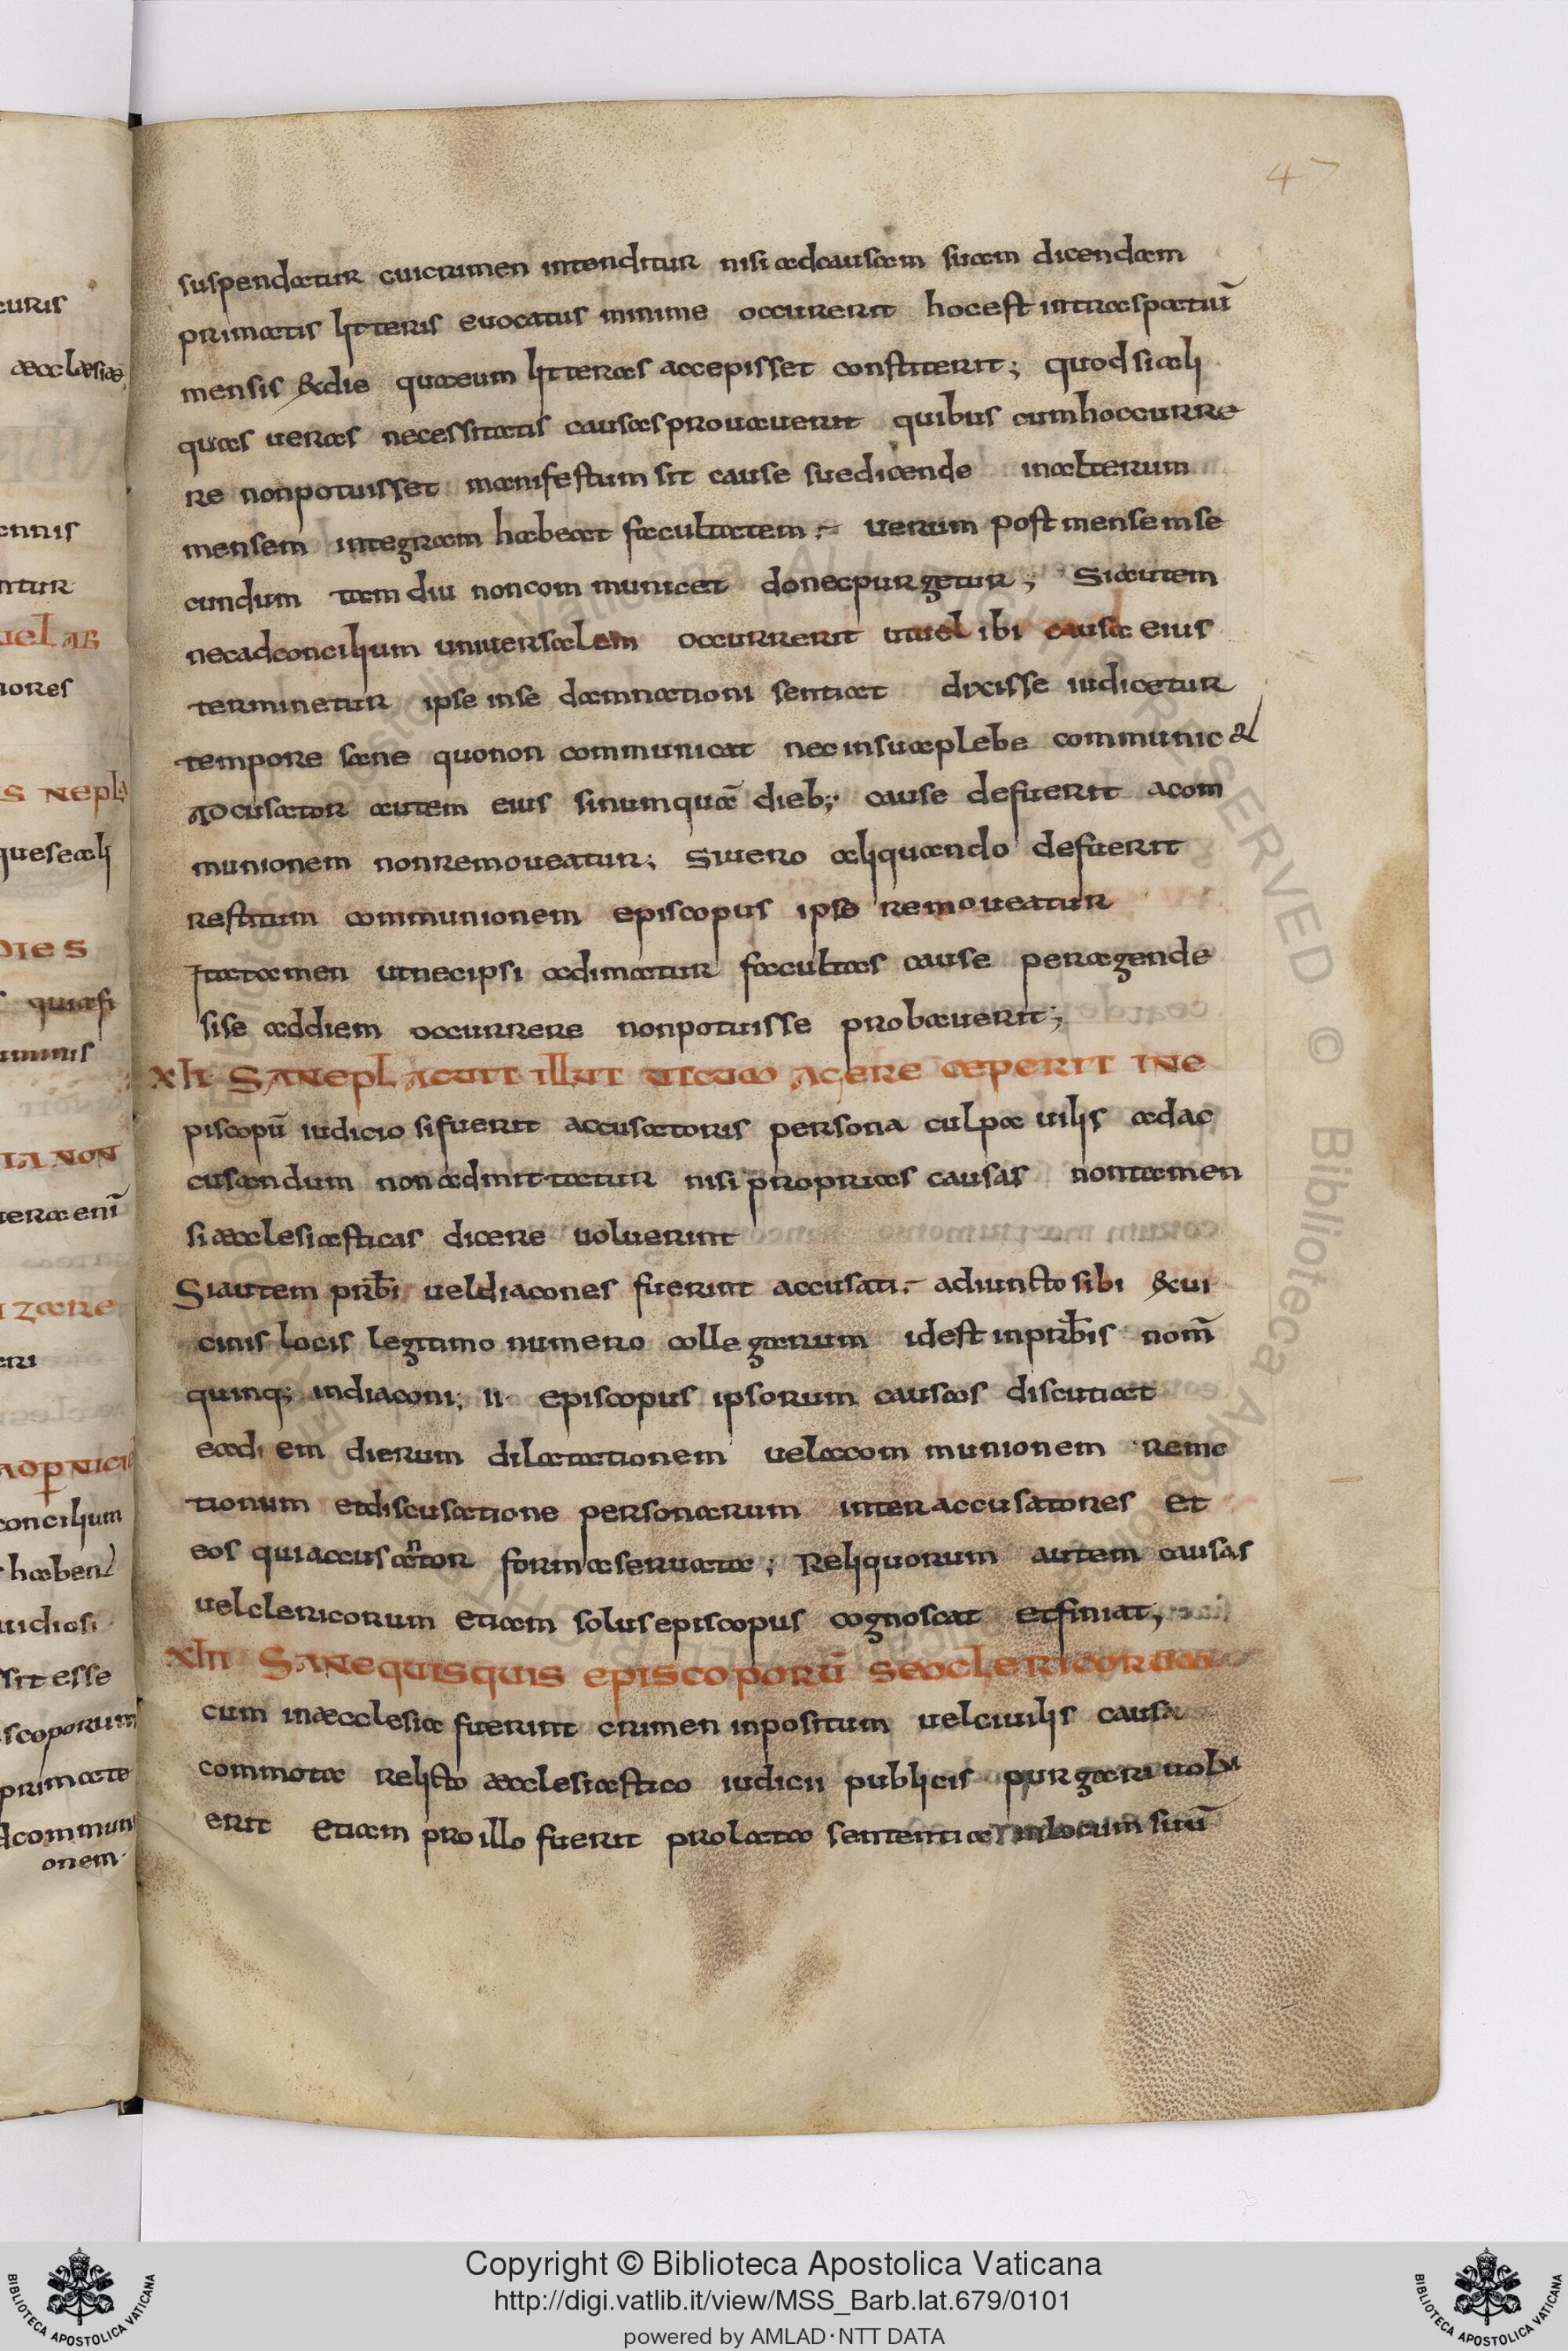 47
suspendatur cuicrimen intenditur nisi adcausam suam dicendam
primatis litteris euocatus minime occurerit hocest intraspatiū
mensis &die quaeum litteras accepisset constiterit; quodsiali
quas ueras necessitatis causasprouauerit quibus eumhoccurre
re nonpotuisset manifestum sit cause suedicende inalterum
mensem integram habeat facultatem; uerum post mensemse
cundum tam diu noncommunicet donecpurgetur; Siautem
necadconcilium uniuersalem occurrerit utuel ibi causa eius
terminetur ipse inse damnationi sentiat dixisse iudicetur
tempore sane quonon communicat nec insuaplebe communic&
accusator autem eius sinumquā dieb; cause defuerit acom
munionem nonremoueatur; Siuero aliquando defuerit
restitum communionem episcopus ipse remoueatur
Itatamen utnecipsi adimatur facultas cause peragende
sise addiem occurrere nonpotuisse probauerit;
xlı Saneplacuit illut utcum agere ceperit ine
piscopū iudicio sifuerit accusatoris persona culpa uilis adac
cusandum nonadmittatur nisi proprias causas nontamen
siaecclesiasticas dicere uoluerint
Siautem prb̄i ueldiacones fuerint accusati adiuncto sibi &cui
cinis locis legitimo numero collegarum idest inprb̄is nom̄
quinq; indiaconi; ii episcopus ipsorum causas discutiat
eadem dierum dilatationem uelaccommunionem remo
tionum etdiscusatione personarum interaccusatores et
eos quiaccusantor formaseruata; Reliquorum autem causas
uelclericorum etiam solusepiscopus cognoscat etfiniat;
xlii Sanequisquis episcoporū seoclericorum
cum inaecclesia fuerint crimen inpositum uelciuilis causa
commota relicto aecclesiastico iudicii publicis purgari uolu
erit etiam pro illo fuerit prolata sententia inlocum suū
curis
ennis
ntur
uel ar
nores
queseali
dies
ia non
concilium
sit esse
iscoporum
onem
Copyright © Biblioteca Apostolica Vaticana
http://digi.vatlib.it/view/MSS_Barb.lat.679/0101
powered by AMLAD·NTT DATA
BIBLIOTECA APOSTOLICA VATICANA
BIBLIOTECA APOSTOLICA VATICANA